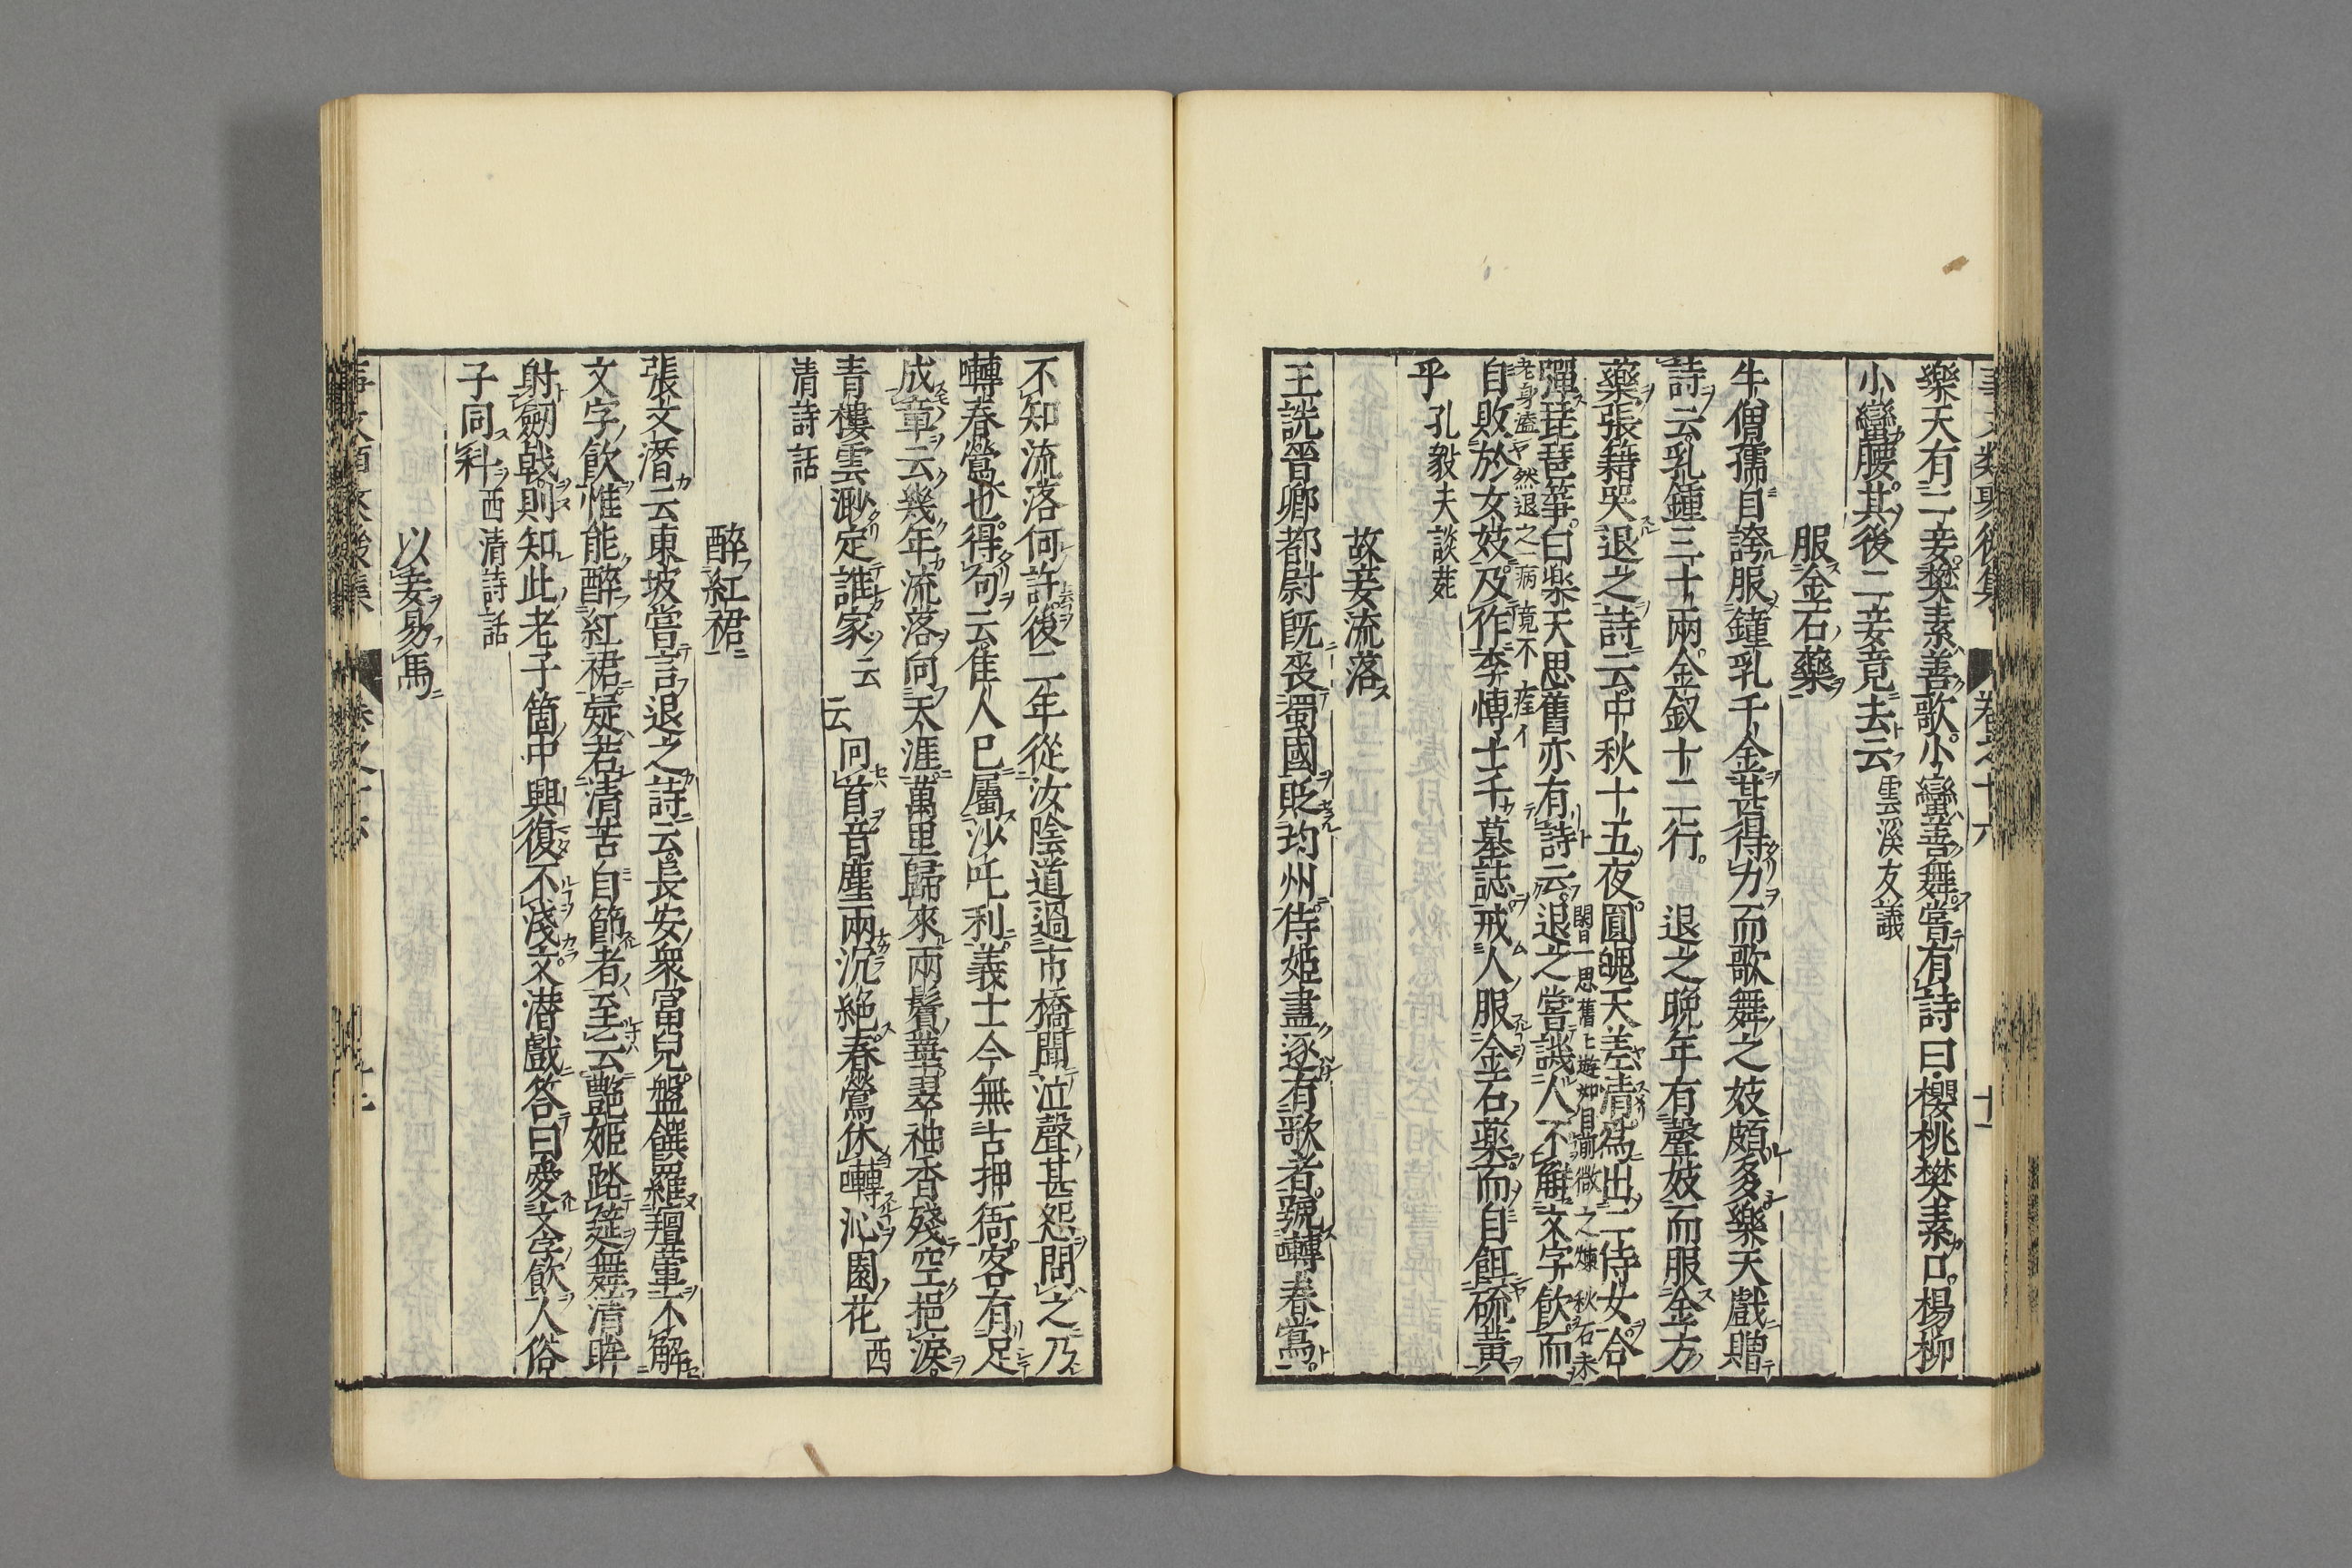 樂天有二妾樊素善歌小蠻善舞嘗有詩曰櫻桃樊素口楊柳
小蠻腰其後二妾竟去云 雲溪友議
服金石藥
牛僧孺自誇服鐘乳千金甚得力而歌舞之妓頗多樂天戲贈
詩云乳鍾三千兩金釵十二行 退之晚年有聲妓而服金方
藥張籍哭退之詩云中秋十五夜圓魄天差清爲出二侍女合
彈琵琶箏白樂天思舊亦有詩云退之嘗譏人不解文字飲而
自敗於女妓及作李博士千墓誌戒人服金石藥而自餌硫黃
乎 孔毅夫談苑
故妾流落
王詵晉卿都尉既喪蜀國貶均州侍姬盡逐有歌者號囀春鶯
不知流落何許後二年從汝陰道過市橋聞泣聲甚怨問之乃
囀春鶯也得句云隹人已屬沙吒利義士今無古押衙客有足
成章云幾年流落向天涯萬里歸來兩鬢華翠袖香殘空挹淚
青樓雲渺定誰家云云回首音塵兩沉絶春鶯休囀沁園花 西
清詩話
醉紅裙
張文潛云東坡嘗言退之詩云長安衆富兒盤饌羅羶葷不解
文字飲惟能醉紅裙疑若清苦自節者至云艷姬踏筵舞清眸
射劒戟則知此老子箇中興復不淺文潛戲答曰愛文字飲人俗
子同科 西清詩話
以妾易馬